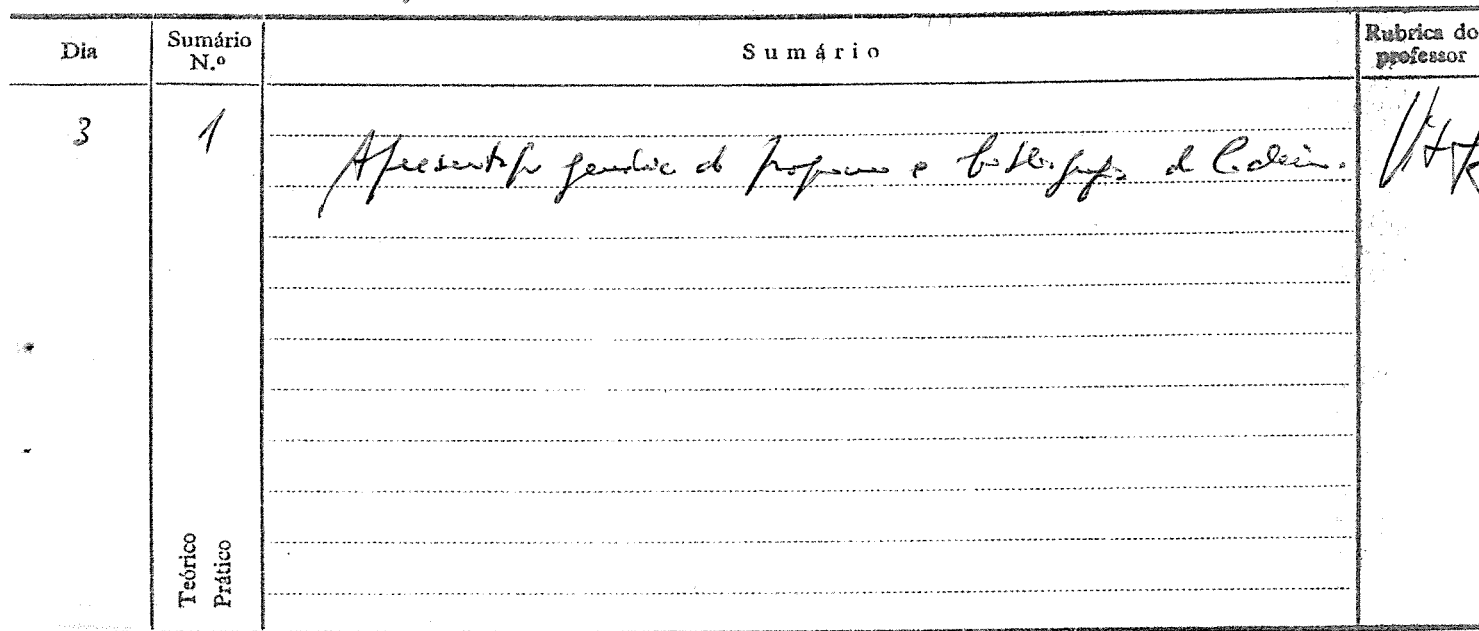 Dia
Sumário N.º
Sumário
Rubrica do professor
3
1
Apresentação genérica do programa e bibliografia da Cadeira.
Teórico
Prático